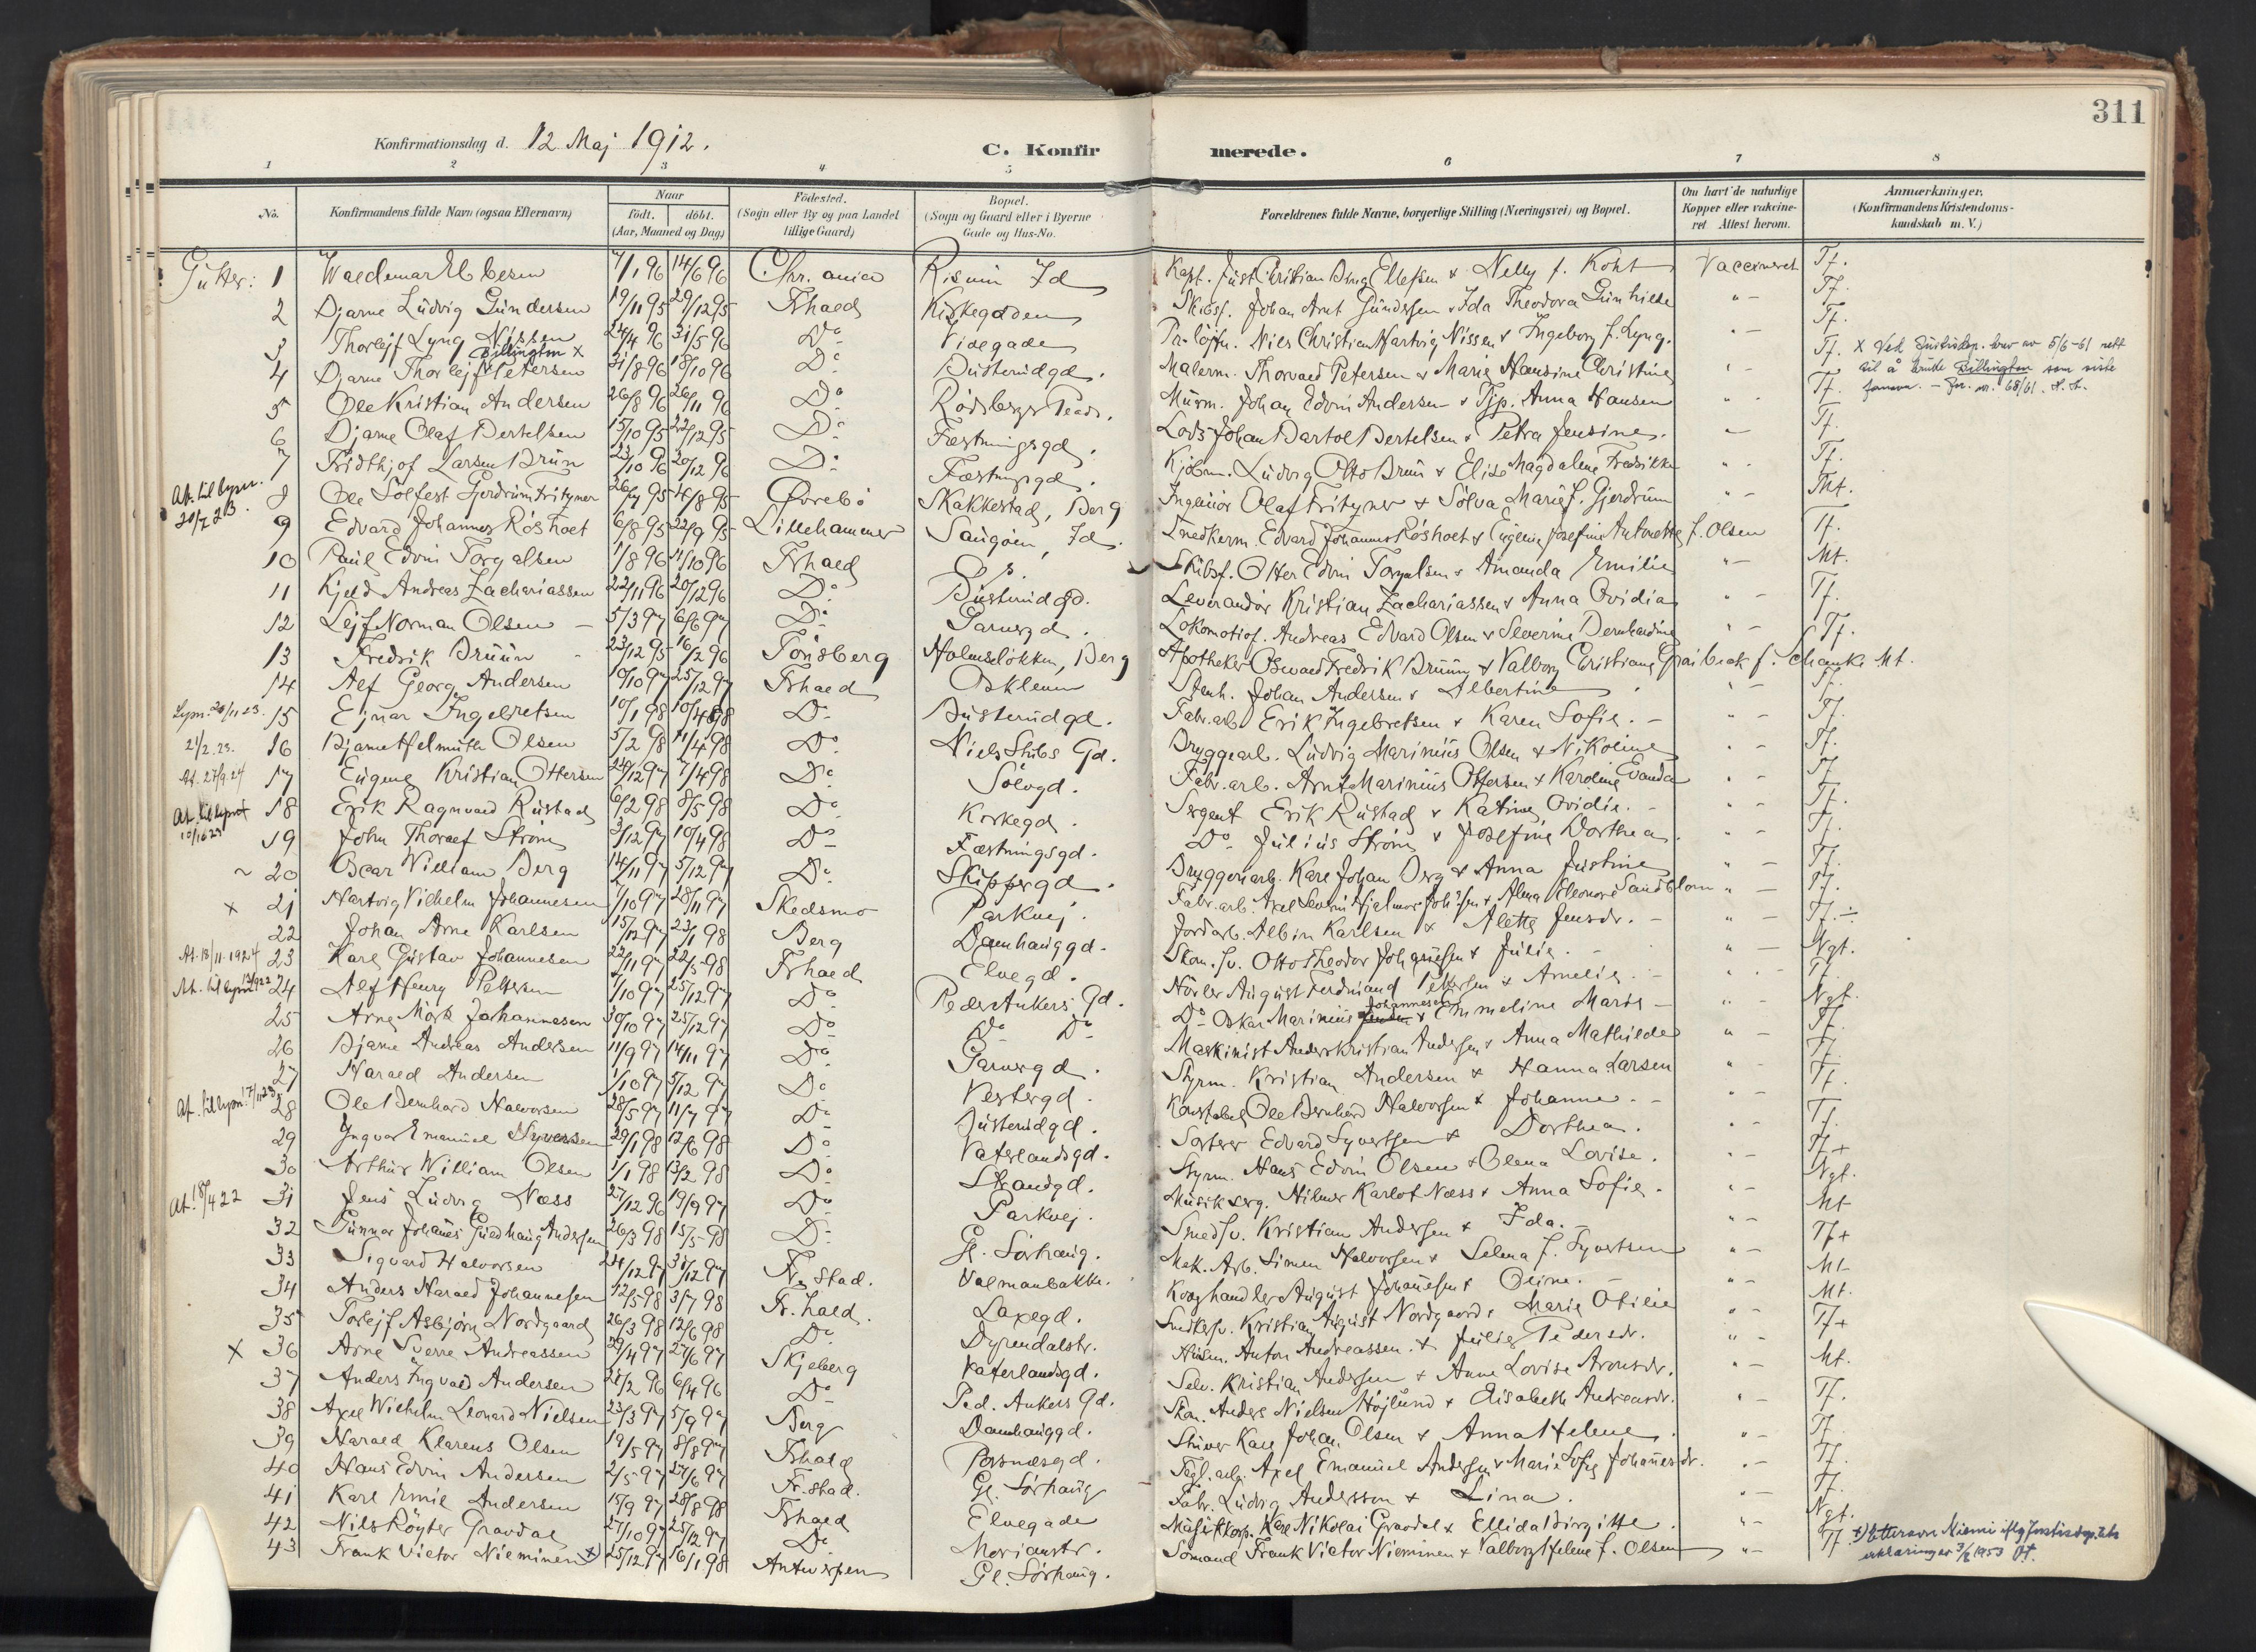 311
Konfirmationsdag d. 12 Maj 1912.
C. Konfirmerede.
1 2 3 4 5 6 7 8
No.
Konfirmandens fulde Navn (ogsaa Efternavn)
Naar
födt. döbt.
(Aar, Maaned og Dag)
Födested.
(Sogn eller By og paa Landet
tillige Gaard)
Bopæl.
(Sogn og Gaard eller i Byerne
Gade og Hus-No.
Forældrenes fulde Navne, borgerlige Stilling (Næringsvei) og Bopæl.
Om havt de naturlige
Kopper eller vakcine-
ret Attest herom.
Anmærkninger.
(Konfirmandens Kristendoms-
kundskab m. V.)
Gutter: 1 Waldemar 7/1 96 14/6 96 Chr.ania Id Kapt. Just Kristian Ellefsen & Nelly f. Koht Vaccineret Tf.
2 Bjarne Ludvig Gundersen 19/11 95 29/12 95 Frhald Kirkegaden Skibsf. Johan Arnt Gundersen & Ida Theodora Gunhilde " - Tf.
3 Thorlejf Lyng Nissen 24/4 96 31/5 96 Do Videgade Pr-löjtn. Niels Christian Hartvig Nissen & Ingeborg f. Lyng. " - Tf.
Billington x
4 Bjarne Thorlejf Petersen 31/8 96 18/10 96 Do Busterudgd. Malerm. Thorvald Petersen & Marie Hansine Christine " - Tf. X Ved Justisdep. brev av 5/6-61 rett
til å bruke Billington som siste
fornavn. - Jnr. nr. 68/61.
5 Ole Kristian Andersen 26/8 96 26/11 96 Do Rödsberg Murm. Johan Edvin Andersen & Anna Hansen " - Tf.
6 Bjarne Olaf Bertelsen 15/10 95 22/12 95 Do Fæstningsgd. Lods Johan Bartol Bertelsen & Petra Jensine. " - Tf.
7 Fridthjof Larsen Brun 23/10 96 20/12 96 Do Fæstningsgd. Kjöbm. Ludvig Otto Brun & Elise Magdalene Fredrikke " - Tf.
At. til lysn. 20/7 23. 8 Ole Solfest Gjerdrum Fritzner 26/7 95 4/8 95 Övrebö Skakkestad, Berg Ingeniör Olaf Fritzner & Solva Marie f. Gjerdrum " - Tf.
9 Edvard Johannes Röshoet 6/8 95 22/9 95 Lillehammer Saugöen, Id. Snedkerm. Edvard Johannes Röshoet & Eugenie Josefine Antonette f. Olsen Tf.
10 Paul Edvin Torgalsen 1/8 96 11/10 96 Frhald Os. Skibsf. Otter Edvin Torgalsen & Amanda Emilie " - Mt.
11 Kjeld Andreas Zachariassen 22/11 96 20/12 96 Do Busterudgd. Leverandör Kristian Zachariassen & Anna Ovidia " - Tf.
12 Lejf Norman Olsen 5/3 97 6/6 97 Do Garvergd. Lokomotivf. Andreas Edvard Olsen & Severine Bernhardine " - Tf.
13 Fredrik Bruun 23/12 95 16/2 96 Tönsberg Holmelökken, Berg Apotheker Oswald Fredrik Bruun & Valborg Christiane f. Schanke Mt.
14 Alf Georg Andersen 10/10 97 25/12 97 Frhald Oskleven Johan Andersen & Albertine " - Tf.
Lysn. 20/11 23. 15 Ejnar Ingebretsen 10/1 98 10/4 98 Do Busterudgd. Fabr.arb Erik Ingebretsen & Karen Sofie. - " - Tf.
2/2. 23. 16 Bjarne Helmuth Olsen 5/2 98 11/4 98 Do Niels Stubs Gd. Bryggearb. Ludvig Marinius Olsen & Nikoline " - Tf.
At. 27/9. 24 17 Eugene Kristian Ottersen 24/12 97 7/4 98 Do Sölvgd. Fabr. arb. Arnt Marinius Ottersen & Karoline Evanda " - Tf.
18 Erik Ragnvald Rustad 6/2 98 8/5 98 Do Kirkegd. Sergent Erik Rustad & Katinka Ovidie. - " - Tf.
19 John Thoralf Ström 3/12 97 10/4 98 Do Fæstningsgd. Do Julius Ström & Josefine Dorthea. " - Tf.
~ 20 Oscar William Berg 14/11 97 5/12 97 Do Skippergd. Bryggeriarb. Karl Johan Berg & Anna Justine " - Tf.
x 21 Hartvig Vilhelm Johannesen 7/10 97 28/11 97 Skedsmo Parkvej. Fabr.arb. Axel Severin Hjalmar Joh's'en & Alma Eleonore Sandblom " - Tf.
22 Johan Arne Karlsen 15/12 97 23/1 98 Berg Damhauggd. Jordarb. Albin Karlsen & Alette Jensdr. - " - Tf. ÷
At. 18/11 1924 23 Karl Gustav Johannesen 22/11 97 22/5 98 Frhald Elvegd. Skom. sv. Otto Theodor Johannesen & Julie. - " - Ngt.
24 Alf Henry Pettersen 7/10 97 25/12 97 Do Peder Ankers Gd. August Ferdinand Pettersen & Amelie. - " - Tf.
25 Arne Mörk Johannesen 30/10 97 25/12 97 Do Do Do Do Oskar Marinius Johannesen & Emmeline Marie - " - Ngt.
26 Bjarne Andreas Andersen 11/9 97 14/11 97 Do Garvergd. Maskinist Anders Kristian Andersen & Anna Mathilde " - Tf.
27 Harald Andersen 1/10 97 5/12 97 Do Vestergd. Styrm. Kristian Andersen & Hanna Larsen " - Tf.
28 Ole Bernhard Halvorsen 28/5 97 11/7 97 Do Busterudgd. Konstabel Ole Bernhard Halvorsen & Johanne. - " - Tf.
29 Yngvar Emanuel Syvertsen 29/1 98 12/6 98 Do Vaterlandsgd. Sorterer Edvard Syvertsen & Dorthea. " - Tf.
30 Arthur William Olsen 1/1 98 13/2 98 Do Strandgd. Styrm. Hans Edvin Olsen & Olena Lovise. " - Tf+
At. 18/4 22 31 Jens Ludvig Næss 27/12 96 19/9 97 Do Parkvej. Musik serg. Hilmer Karlot Næss & Anna Sofie. - " - Ngt.
32 Gunnar Johannes Guldhaug Andersen 26/3 98 15/5 98 Do Gl. Sörhaug. Smedsv. Kristian Andersen & Ida. - " - Mt
33 Sigvard Halvorsen 24/12 97 31/12 97 Fr.stad. Valmanbakk. Mek. Arb. Simen Halvorsen & Selma f. Syvertsen " - Tf+
34 Anders Harald Johannesen 12/5 98 3/7 98 Fr.hald. Laxegd. Kroghandler August Johannesen & Oline. - " - Mt
35 Torlejf Asbjörn Nordgaard 26/3 98 12/6 98 Do Dyrendalstr. Snedkersv. Kristian August Nordgaard & Marie Otilie " - Mt.
X 36 Arne Sverre Andreassen 29/4 97 27/6 97 Skjeberg Vaterlandsgd. Anton Andreassen & Julie Pedersdr. " - Tf+
37 Anders Ingvald Andersen 28/2 96 6/4 96 Do Ped. Ankers Gd. Selv. Kristian Andersen & Anne Lovise Aronsdr. " - Mt.
38 Axel Wilhelm Leonard Nielsen 23/3 97 5/9 97 Berg Damhauggd. Skom. Anders Nielsen Höjlund & Elisabeth Andreasdr. " - Tf.
39 Harald Klarens Olsen 19/5 97 8/8 97 Frhald Porsnæsgd. Stuver Karl Johan Olsen & Anna Helene. " - Tf.
40 Hans Edvin Andersen 2/5 97 27/6 97 Fr.stad. Gl. Sörhaug Tegl. arb. Axel Emanuel Andersen & Marie Sofie Johannesdr. " - Tf.
41 Karl Emil Andersen 15/9 97 28/8 98 Frhald Elvegade Fabr. Ludvig Andersson & Lina. " - Tf.
42 Nils Röyter Gravdal 27/10 97 25/12 97 Do Morianstr. Musikkorp. Karl Nikolai Gravdal & Ellida Birgitte. " - Ngt.
43 Frank Victor Nieminen x) 25/12 97 16/1 98 Antwerpen Gl. Sörhaug. Sömand Frank Victor Nieminen & Valborg Helene f. Olsen " - Tf. x) Etternavn Niemi iflg Justisdep.ets
erklæring av 3/2 1953